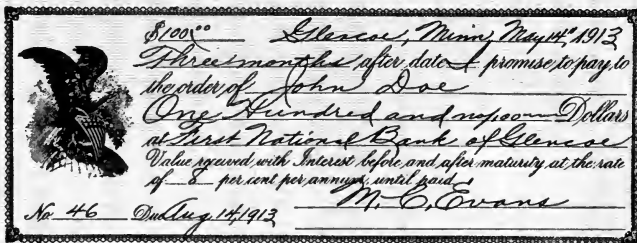 $100.00 Glencoe, Minn, May 14" 1913
Three months after date I promise to pay to
the order of John Doe
One Hundred and no/100 Dollars
at First National Bank of Glencoe
Value received with Interest before and after maturity at the rate
of 8 per cent per annum until paid.
No 46 Due Aug 14, 1913 M. C. Evans